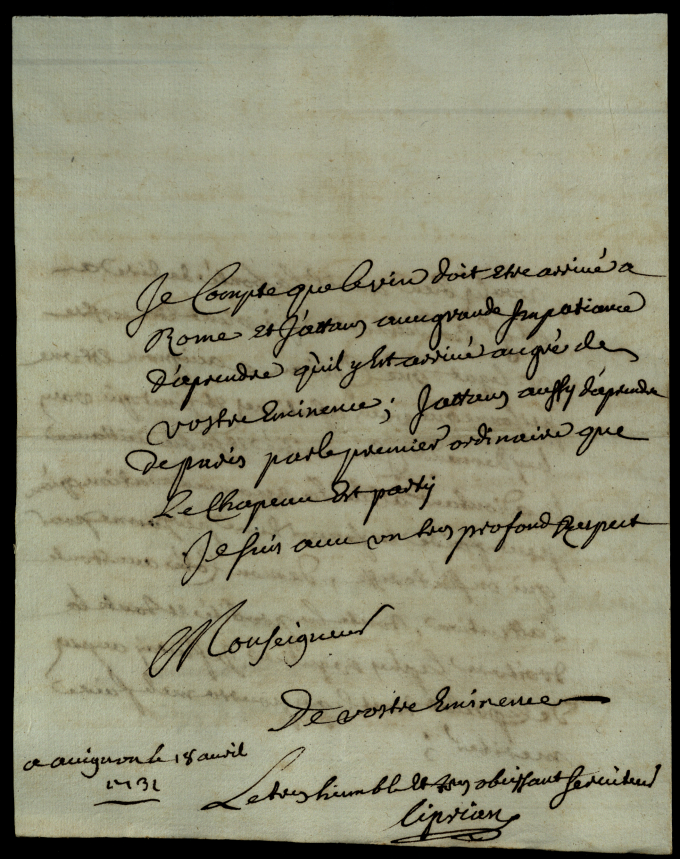 Je Compte que le vin doit etre arrivé a
Rome et J'attans avec grande Impatiance
d'aprendre qu'il y Est arrivé au gré de
vostre Eminence; J'attans aussy d'aprendre
de paris par le premier ordinaire que
Le Chapeau Est party
Je suis avec un tres profond Respect
Monseigneur
De vostre Eminence
a avignon le 18 avril
1731
Le tres humble Et tres obeissant serviteur
Ciprien